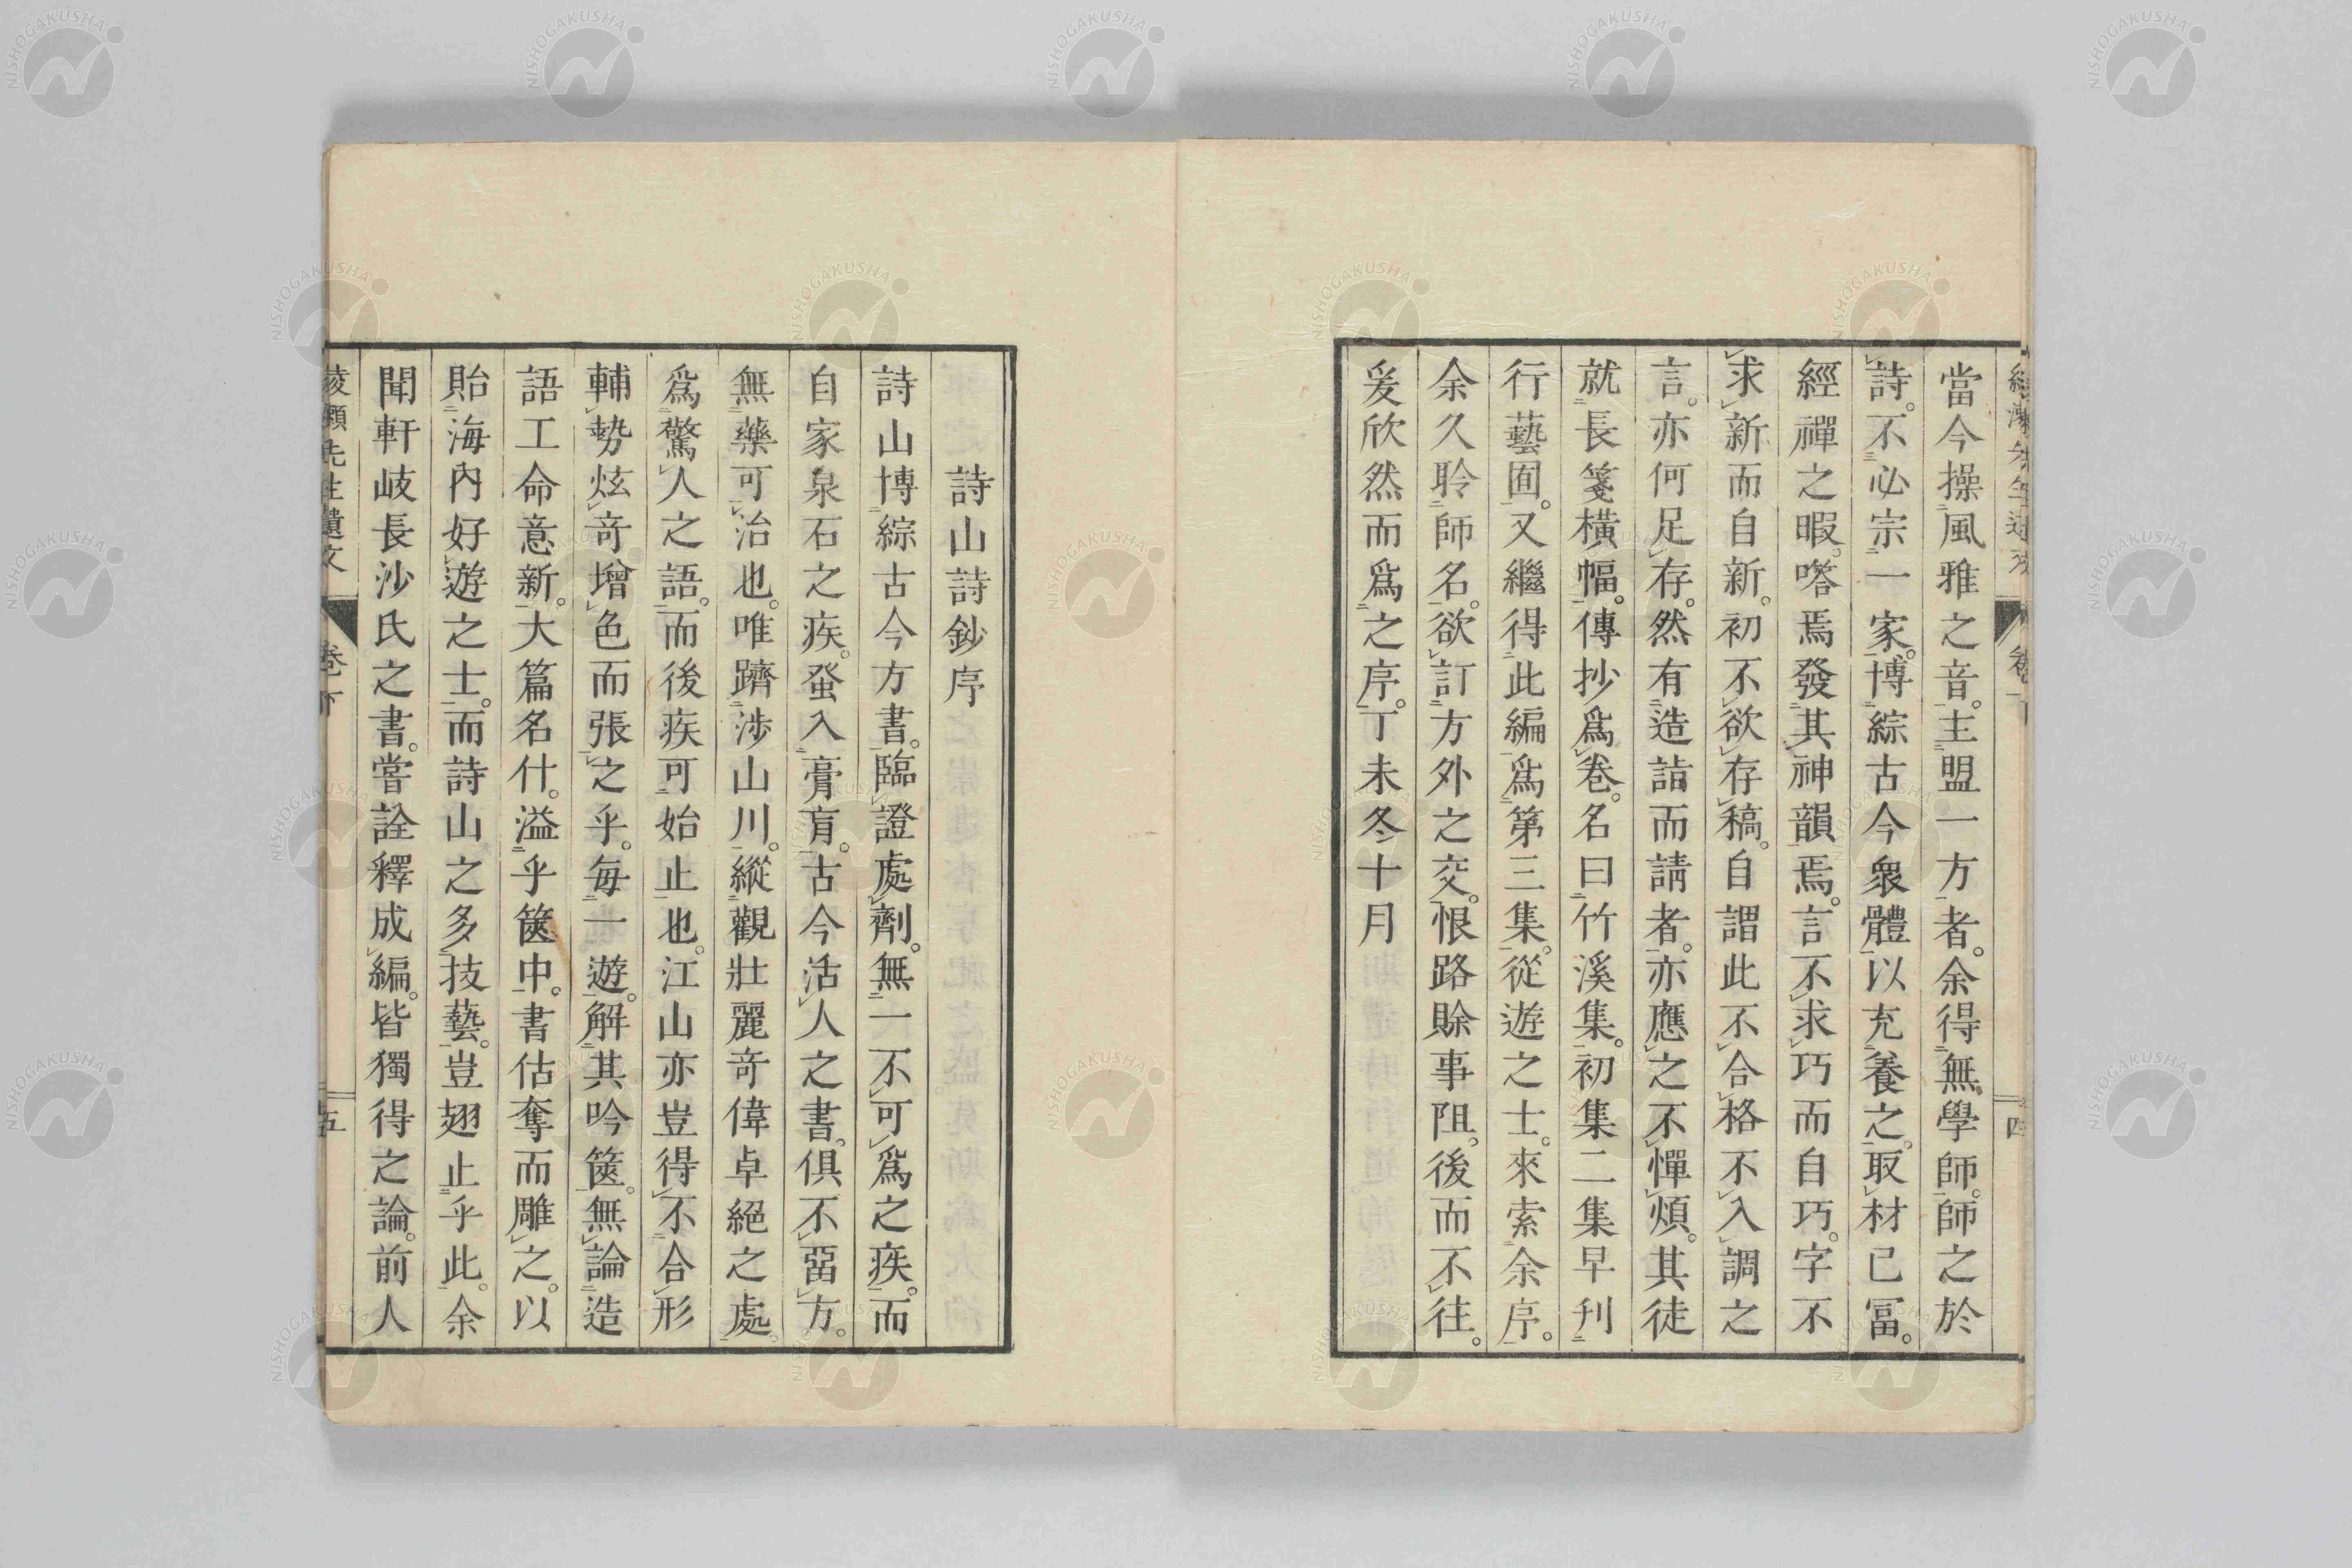 當今操風雅之音。主盟一方者。余得無學師。師之於
詩。不必宗一家。博綜古今衆體以充養之。取材已冨。
經禪之暇。嗒焉發其神韻焉。言不求巧而自巧。字不
求新而自新。初不欲存稿。自謂此不合格不入調之
言。亦何足存。然有造詣而請者。亦應之不憚煩。其徒
就長箋橫幅。傳抄爲卷。名曰竹溪集。初集二集早刊
行藝囿。又繼得此編爲第三集。從遊之士。來索余序。
余久聆師名。欲訂方外之交。恨路賒事阻。後而不往。
爰欣然而爲之序。丁未冬十月
詩山詩鈔序
詩山博綜古今方書。臨證處劑。無一不可爲之疾。而
自家泉石之疾。蚤入膏肓。古今活人之書。俱不畱方。
無藥可治也。唯躋涉山川。縱觀壯麗奇偉卓絕之處。
爲驚人之語。而後疾可始止也。江山亦豈得不合形
輔勢炫奇增色而張之乎。每一遊。解其吟篋。無論造
語工命意新。大篇名什。溢乎篋中。書估奪而雕之。以
貽海內好遊之士。而詩山之多技藝。豈翅止乎此。余
聞軒岐長沙氏之書。嘗詮釋成編。皆獨得之論。前人
卷下
五
NISHOGAKUSHA